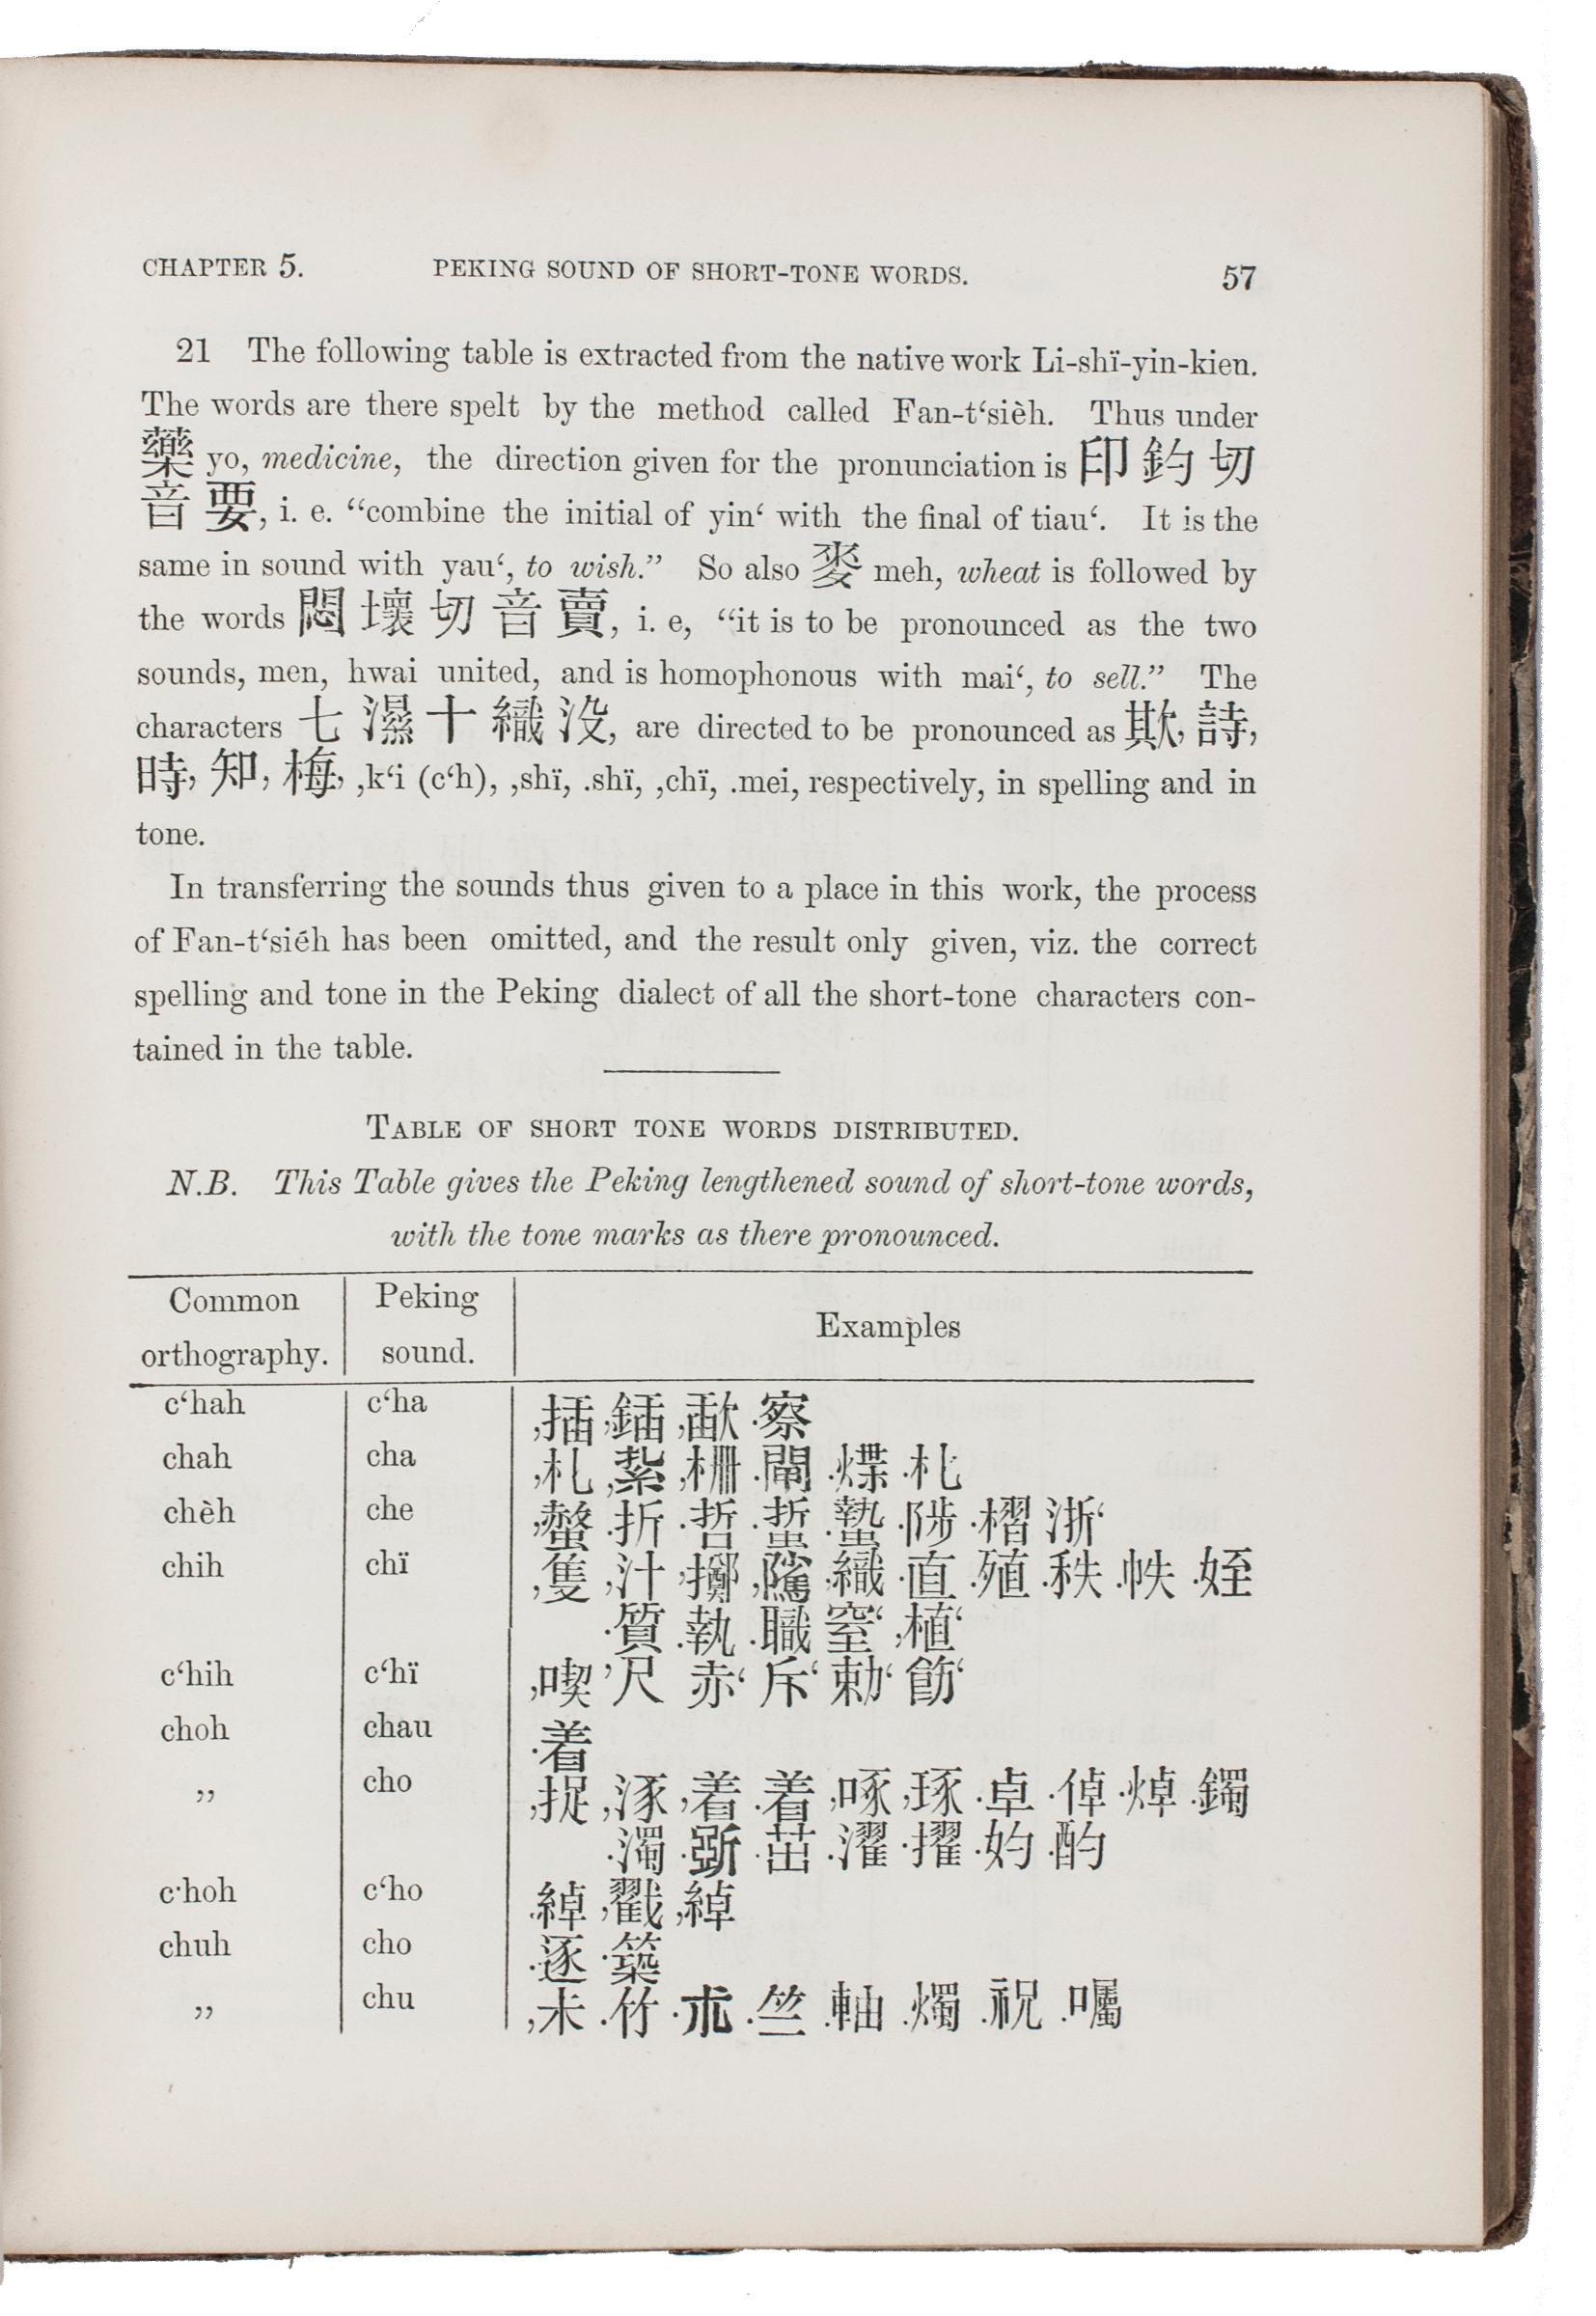 CHAPTER 5. PEKING SOUND OF SHORT-TONE WORDS. 57
21 The following table is extracted from the native work Li-shï-yin-kien.
The words are there spelt by the method called Fan-t‘sièh. Thus under
藥 yo, medicine, the direction given for the pronunciation is 印 釣 切
音 要, i. e. “combine the initial of yin‘ with the final of tiau‘. It is the
same in sound with yau‘, to wish.” So also 麥 meh, wheat is followed by
the words 悶 壞 切 音 賣, i. e, “it is to be pronounced as the two
sounds, men, hwai united, and is homophonous with mai‘, to sell.” The
characters 七 濕 十 織 没, are directed to be pronounced as 欺, 詩,
時, 知, 梅, ,k‘i (c‘h), ,shï, .shï, ,chï, .mei, respectively, in spelling and in
tone.
In transferring the sounds thus given to a place in this work, the process
of Fan-t‘siéh has been omitted, and the result only given, viz. the correct
spelling and tone in the Peking dialect of all the short-tone characters con-
tained in the table.
TABLE OF SHORT TONE WORDS DISTRIBUTED.
N.B. This Table gives the Peking lengthened sound of short-tone words,
with the tone marks as there pronounced.
Common orthography. Peking sound. Examples
c‘hah c‘ha ,插 ,鍤 ,歃 .察
chah cha ,札 ,紮 ,柵 .閘 .煠 .札
chèh che ,螫 .折 .哲 .蜇 .蟄 .陟 .槢 浙‘
chih chï ,隻 ,汁 ,擲 ,騭 ,織 .直 .殖 .秩 .帙 .姪
.質 .執 .職 窒‘ ,植‘
c‘hih c‘hï ,喫 ’尺 赤‘ 斥‘ 勅‘ 飭‘
choh chau .着
„ cho ,捉 ,涿 ,着 .着 ,啄 ,琢 .卓 .倬 .焯 .鐲
.濁 .斵 .茁 .濯 .擢 .妁 .酌
c‘hoh c‘ho .綽 ,戳 ,綽
chuh cho .逐 .築
„ chu ,未 .竹 .朮 .竺 .軸 .燭 .祝 .囑